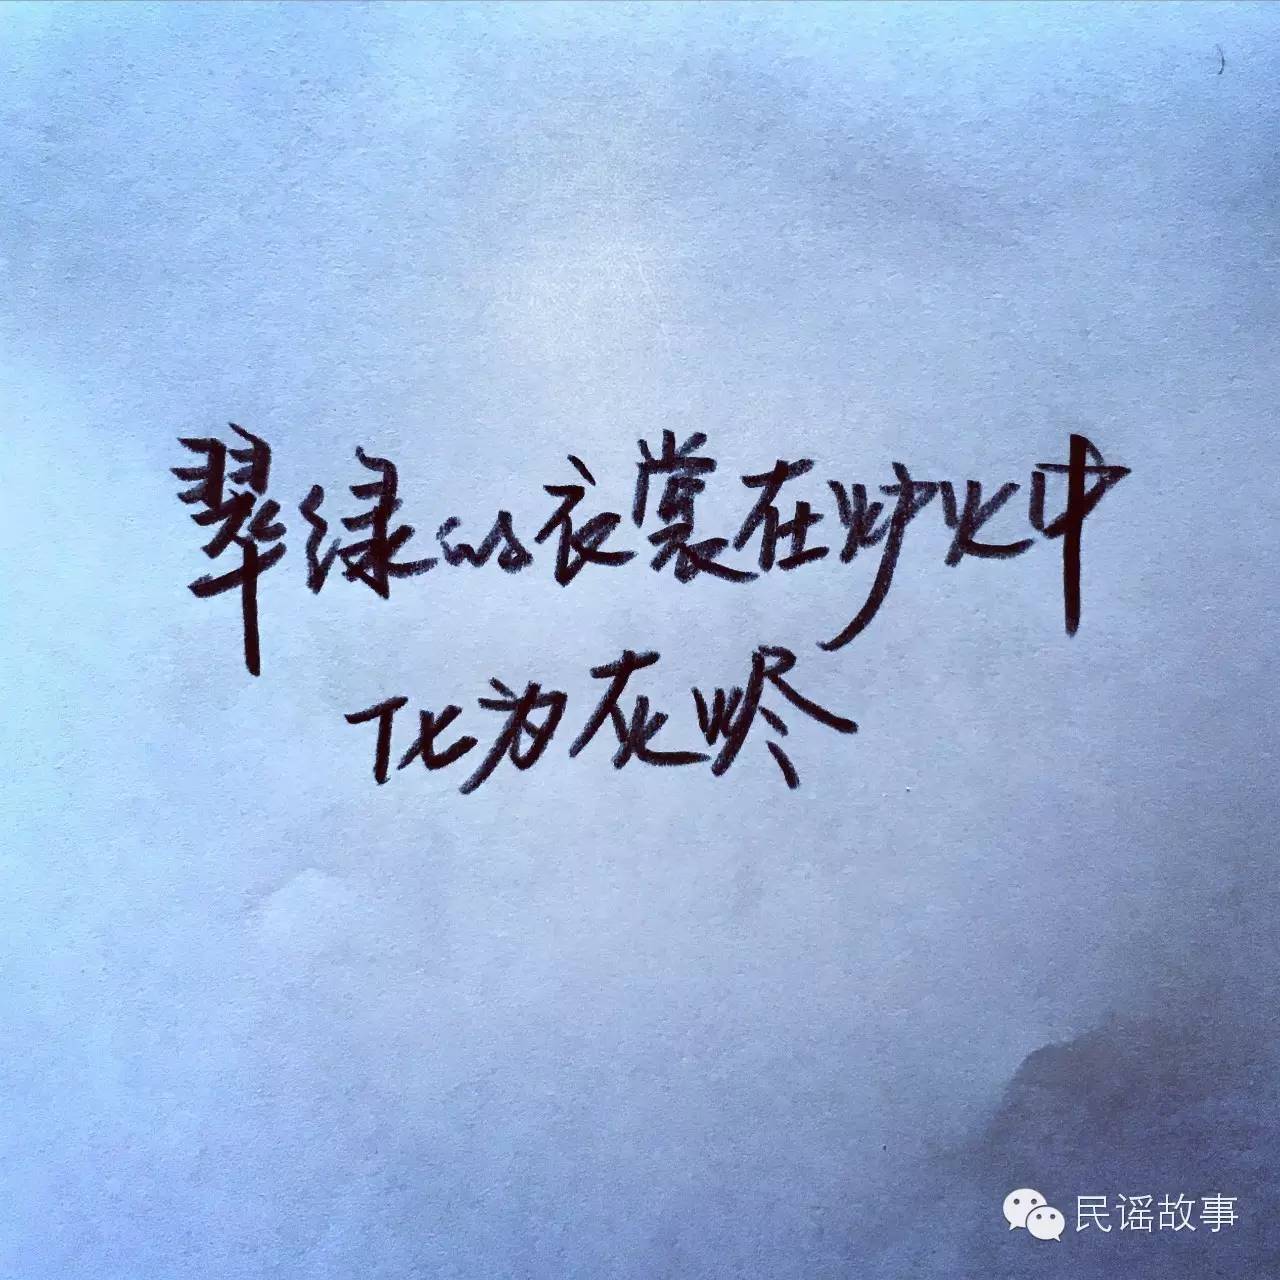 翠绿的衣裳在炉火中
化为灰烬
民谣故事